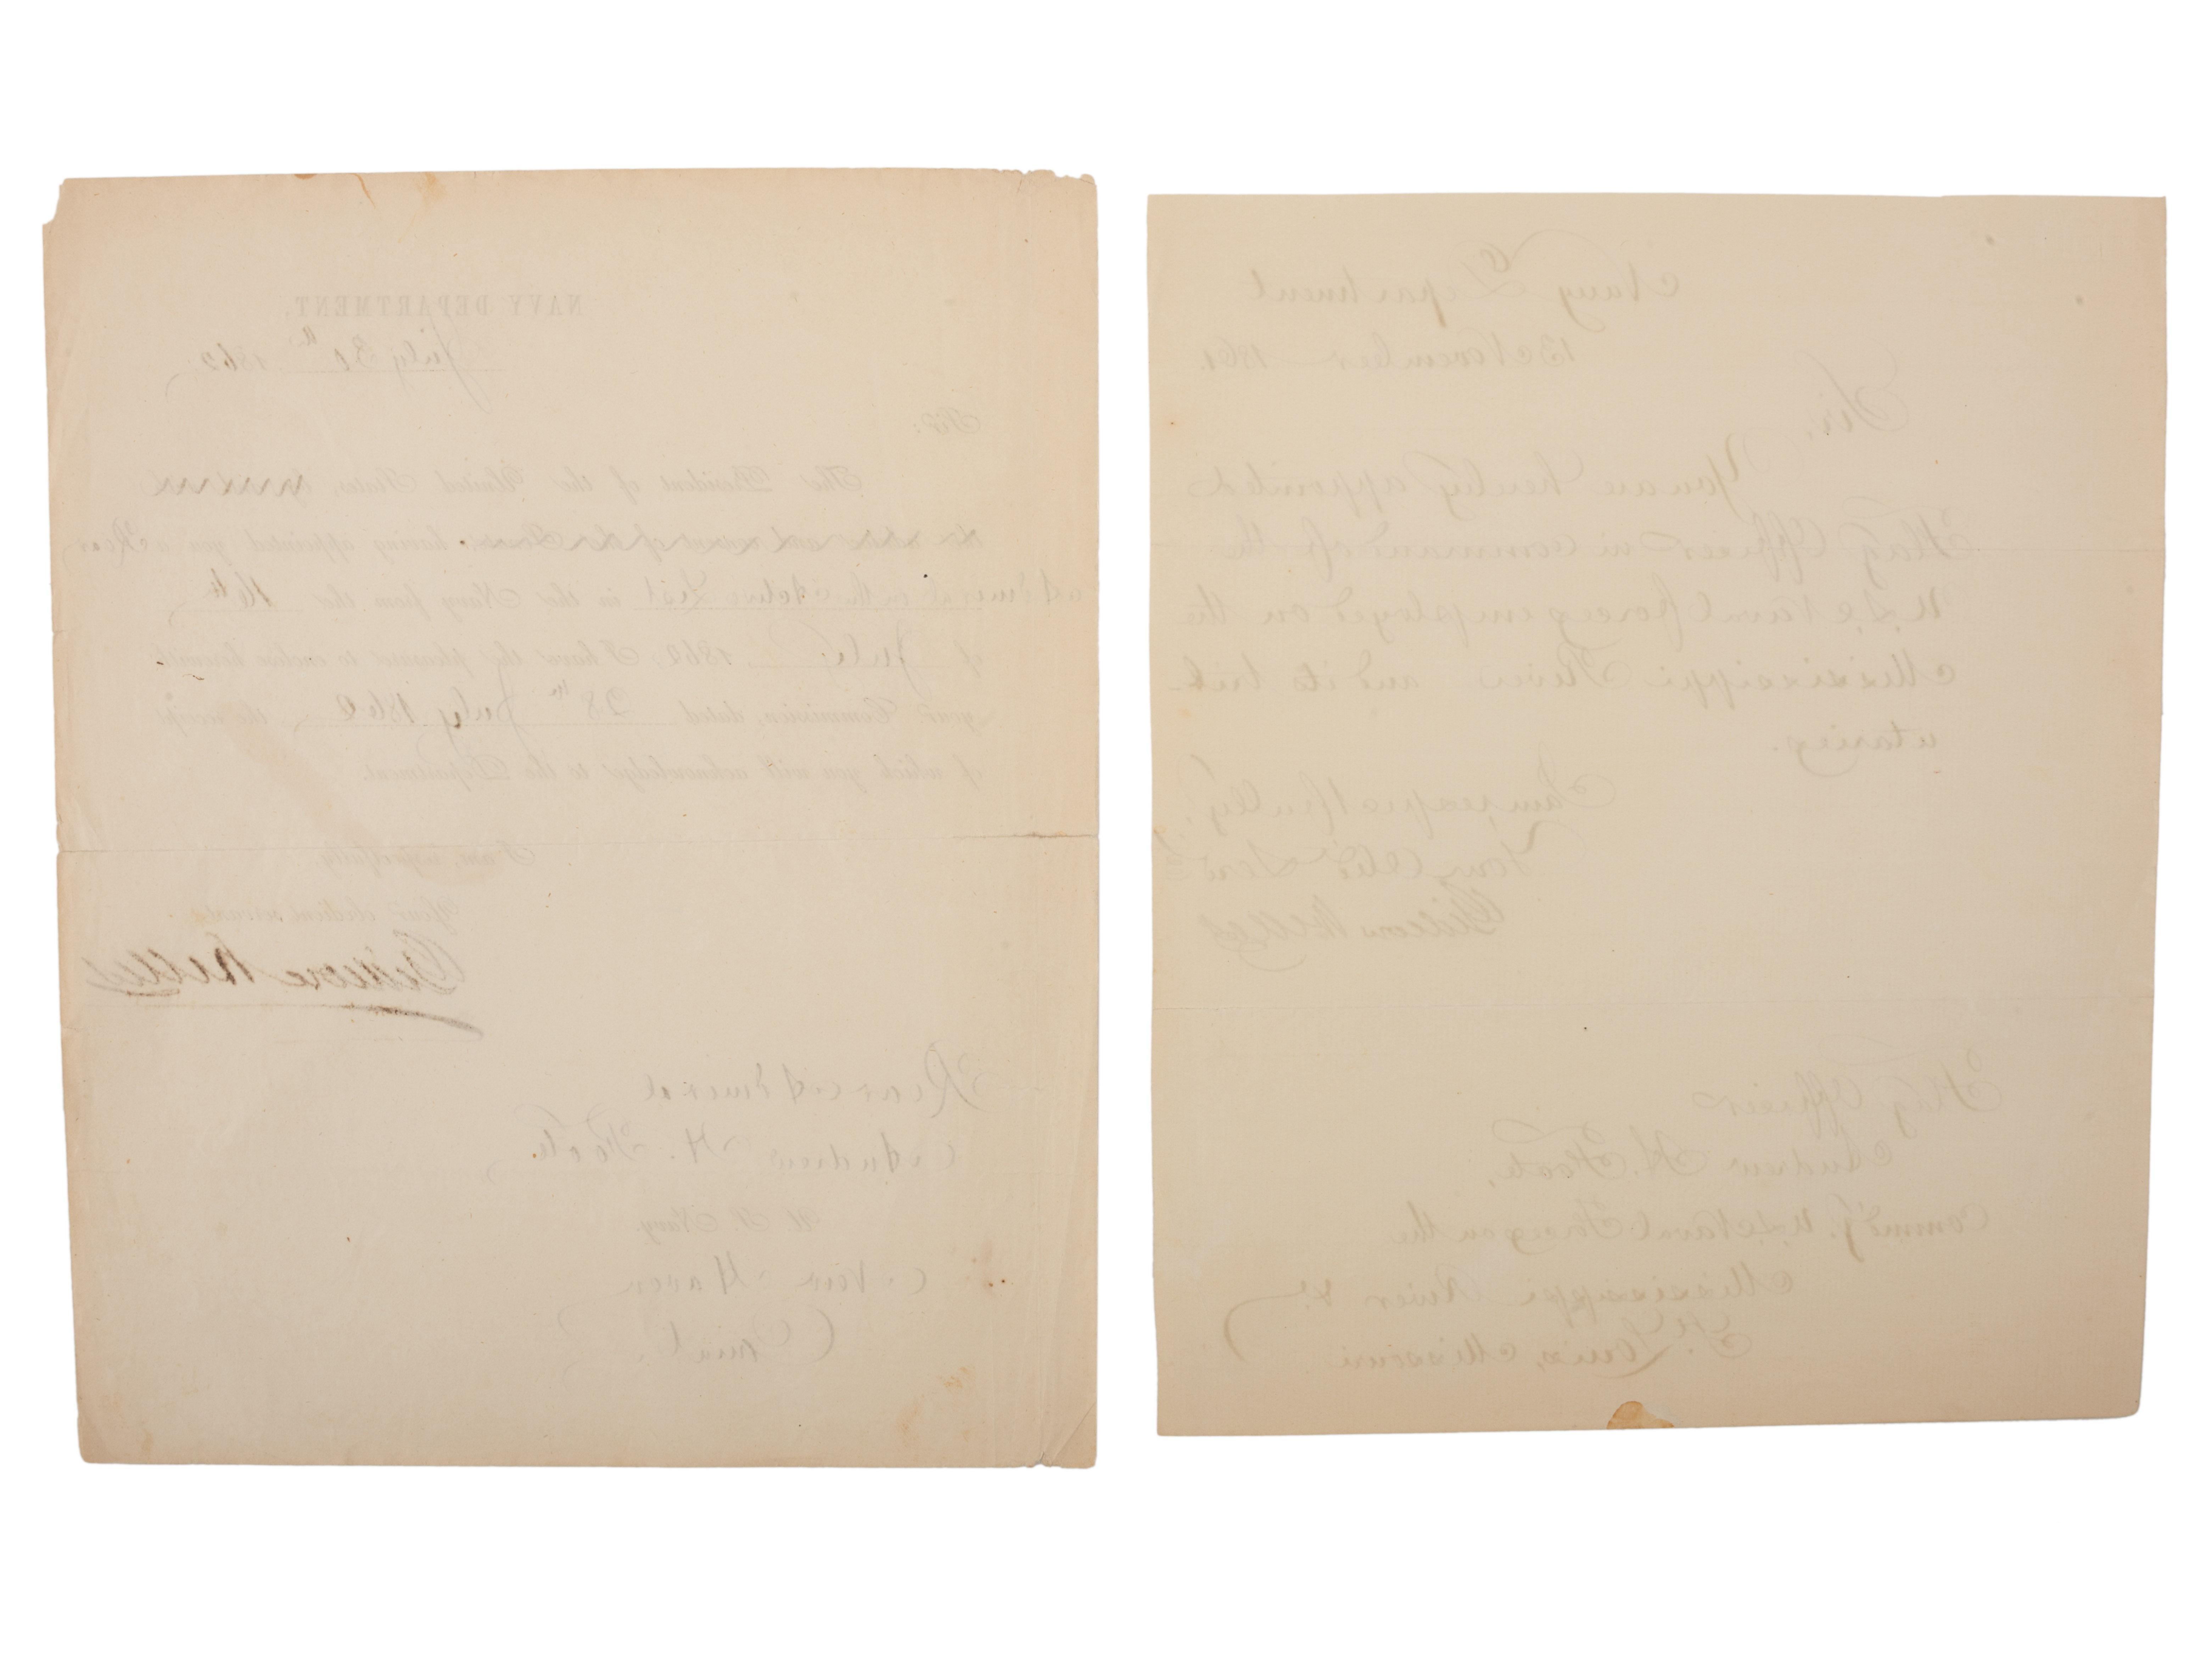 NAVY DEPARTMENT,
July 31st 1862
Sir:
The President of the United States,
having appointed you a Rear
Admiral on the Active List in the Navy from the 16th
of July, 1862, I have the pleasure to enclose herewith
your Commission, dated 28th July 1862, the receipt
of which you will acknowledge to the Department.
I am, respectfully,
Your obedient servant,
Gideon Welles
Rear Admiral
Andrew H. Foote,
U. S. Navy.
New Haven
Conn
Navy Department
13 November 1861.
Sir,
You are hereby appointed
Flag Officer in command of the
U.S. Naval forces employed on the
Mississippi River and its trib-
utaries.
I am respectfully,
Your Obt Servt
Gideon Welles
Flag Officer
Andrew H. Foote,
Commd'g. U.S. Naval Forces on the
Mississippi River &c.
St. Louis, Missouri